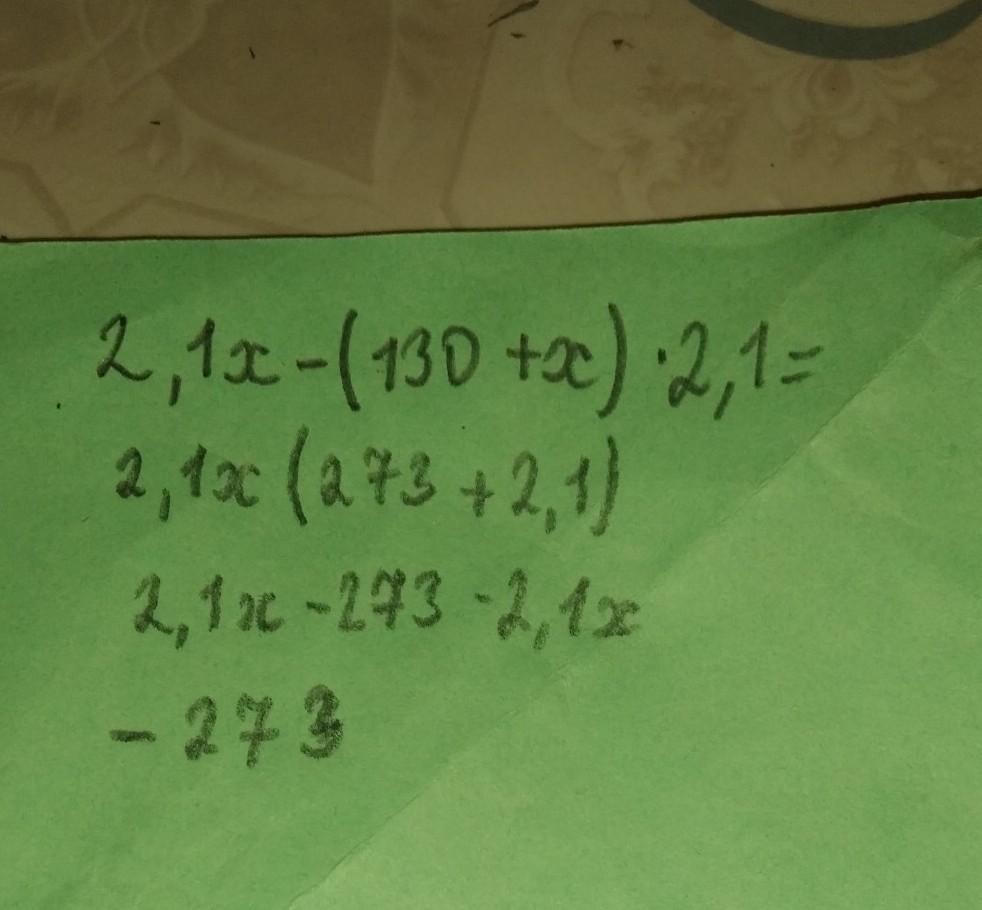 2,1x-(130+x)·2,1=
2,1x(273+2,1)
2,1x-273-2,1x
-273